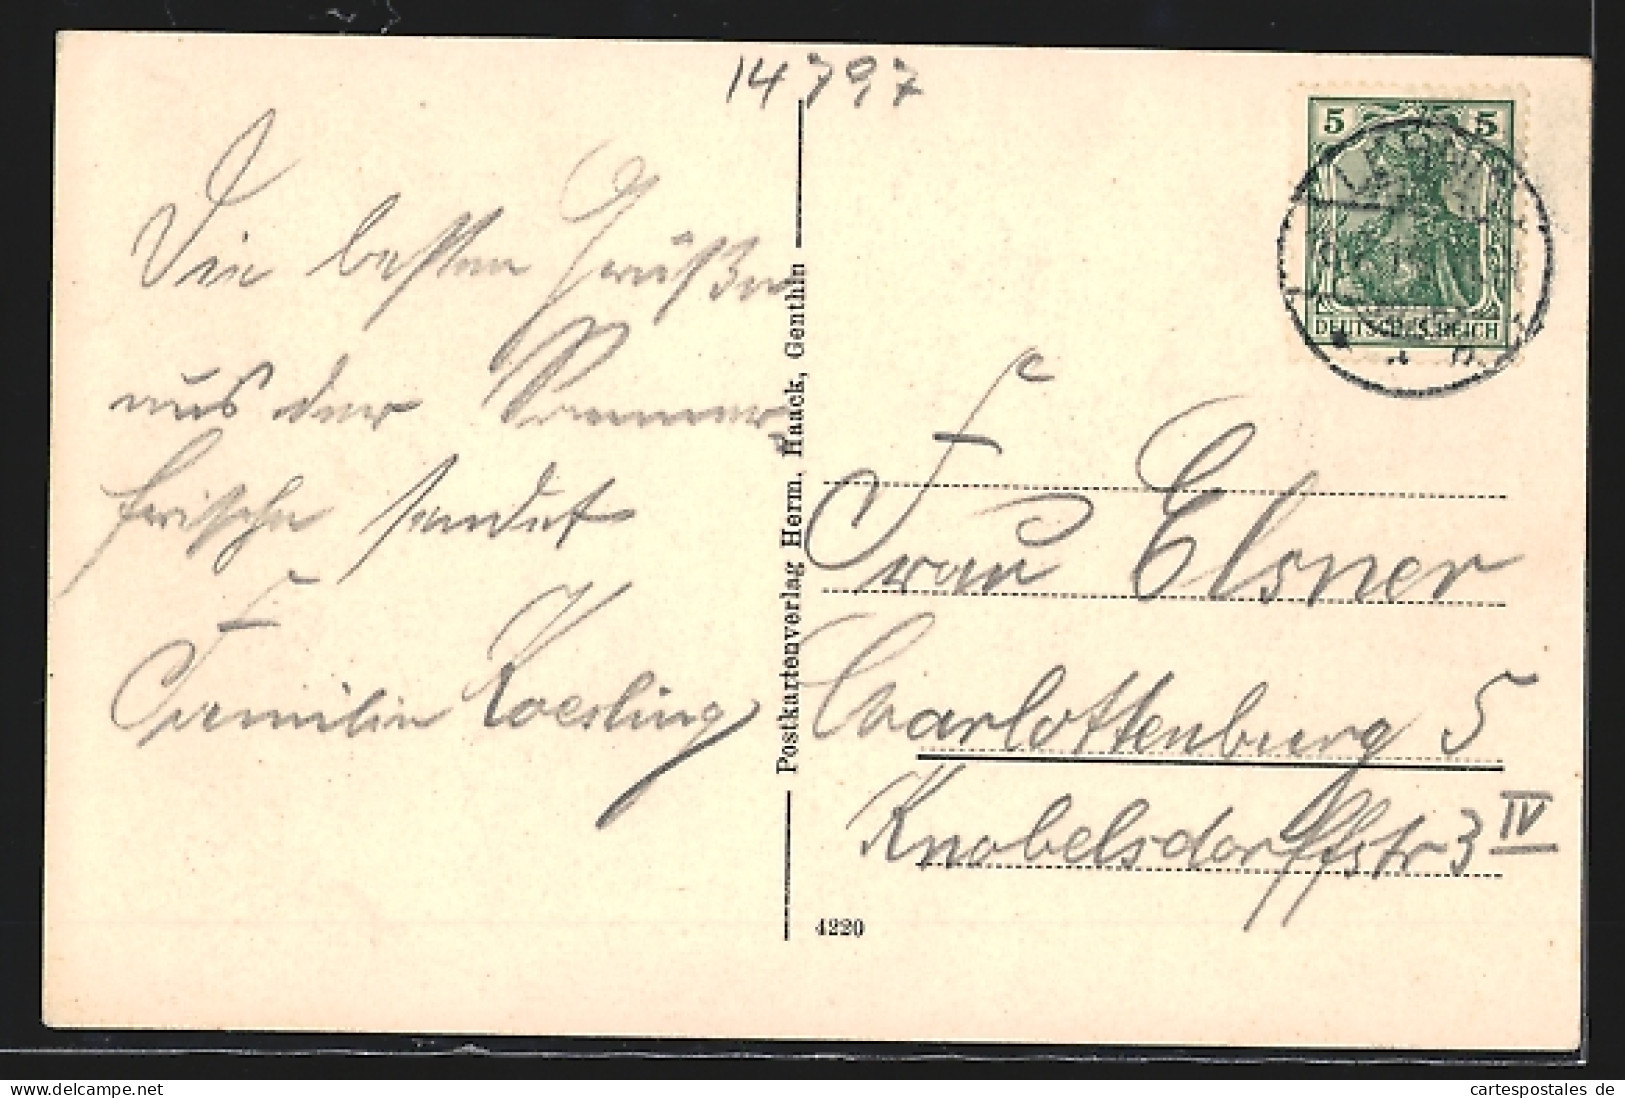 14797
Die besten Grüßen
aus der Sommer
frische sendet
Familie Koesling
Postkartenverlag Herm. Haack, Genthin
5 5
DEUTSCHES REICH
Frau Elsner
Charlottenburg 5
Knobelsdorffstr 3 IV
4220
delcampe.net
cartespostales de